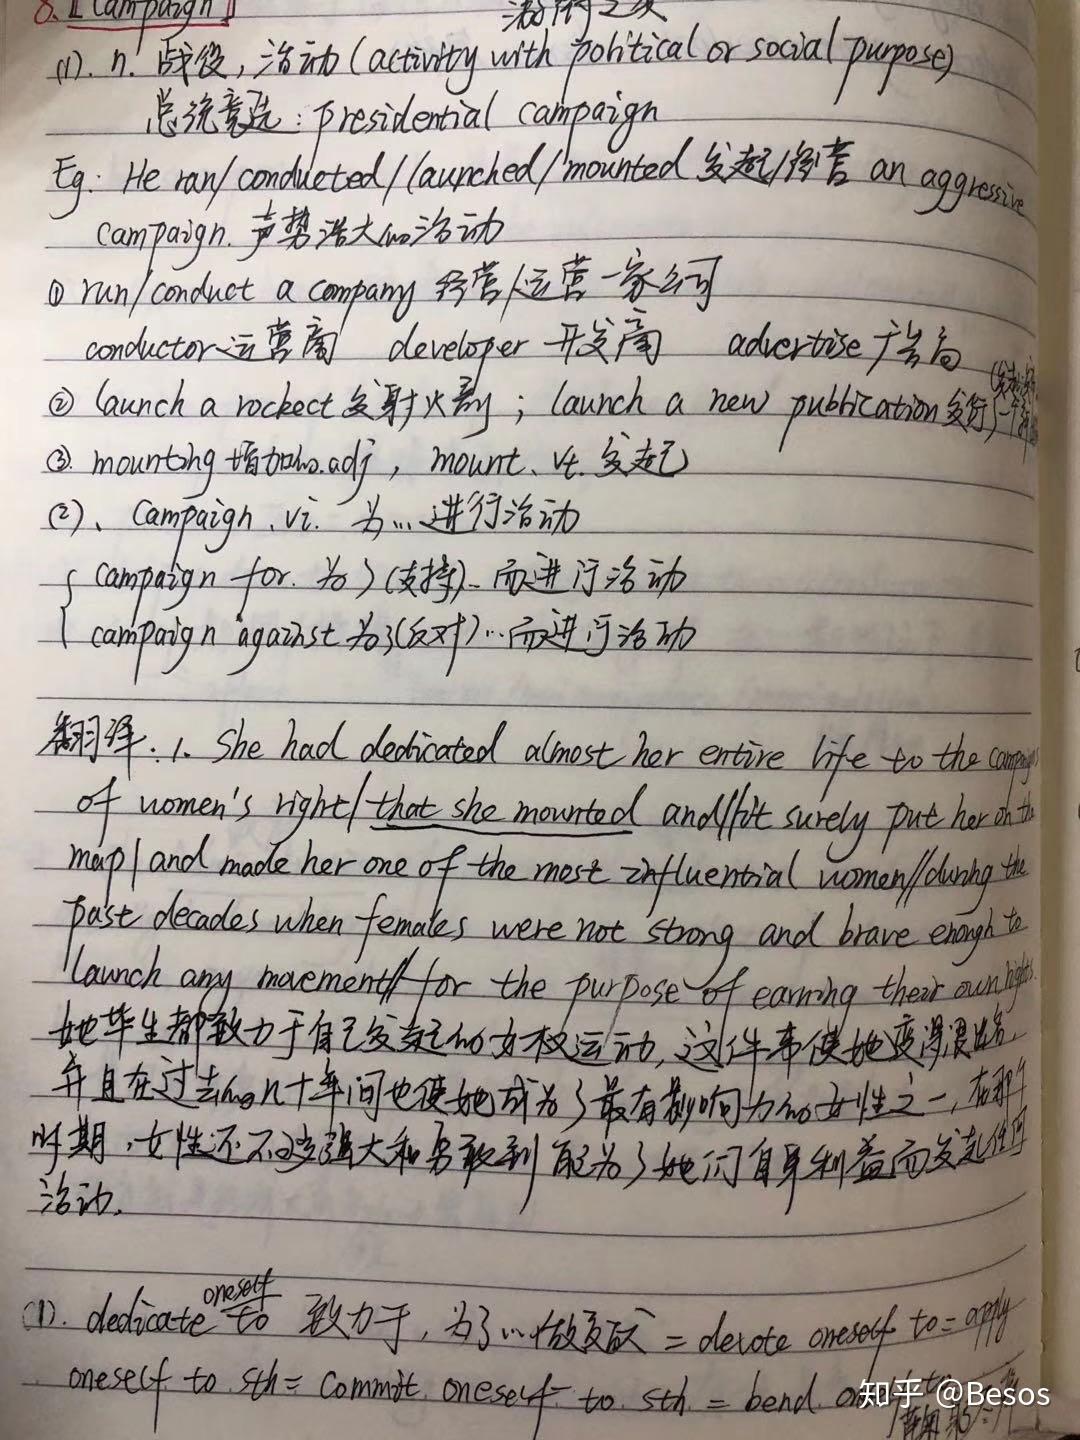 8.【Campaign】
(1). n. 战役，活动(activity with political or social purpose)
总统竞选：presidential campaign
Eg: He ran/conducted/launched/mounted 发起/经营 an aggressive
campaign. 声势浩大的活动
① run/conduct a company 经营/运营一家公司
conductor运营商 developer 开发商 advertise 广告商
② launch a rockect 发射火箭；launch a new publication 发行
③ mounting 增加的.adj，mount. vt. 发起
(2)、Campaign .vi. 为...进行活动
campaign for. 为了(支持)...而进行活动
campaign against 为了(反对)...而进行活动
翻译：1. She had dedicated almost her entire life to the campaigns
of women's right/that she mounted and//it surely put her on the
map/and made her one of the most influential women//during the
past decades when females were not strong and brave enough to
launch any movement//for the purpose of earning their own rights.
她毕生都致力于自己发起的女权运动，这件事使她变得
并且在过去的几十年间也使她成为了最有影响力的女性之一，在那个
时期，女性还不够强大和勇敢到能为了她们自身利益而发起任何
活动.
(1). dedicate oneself to 致力于，为了...做贡献 = devote oneself to = apply
oneself to sth = commit oneself to sth = bend
知乎 @Besos